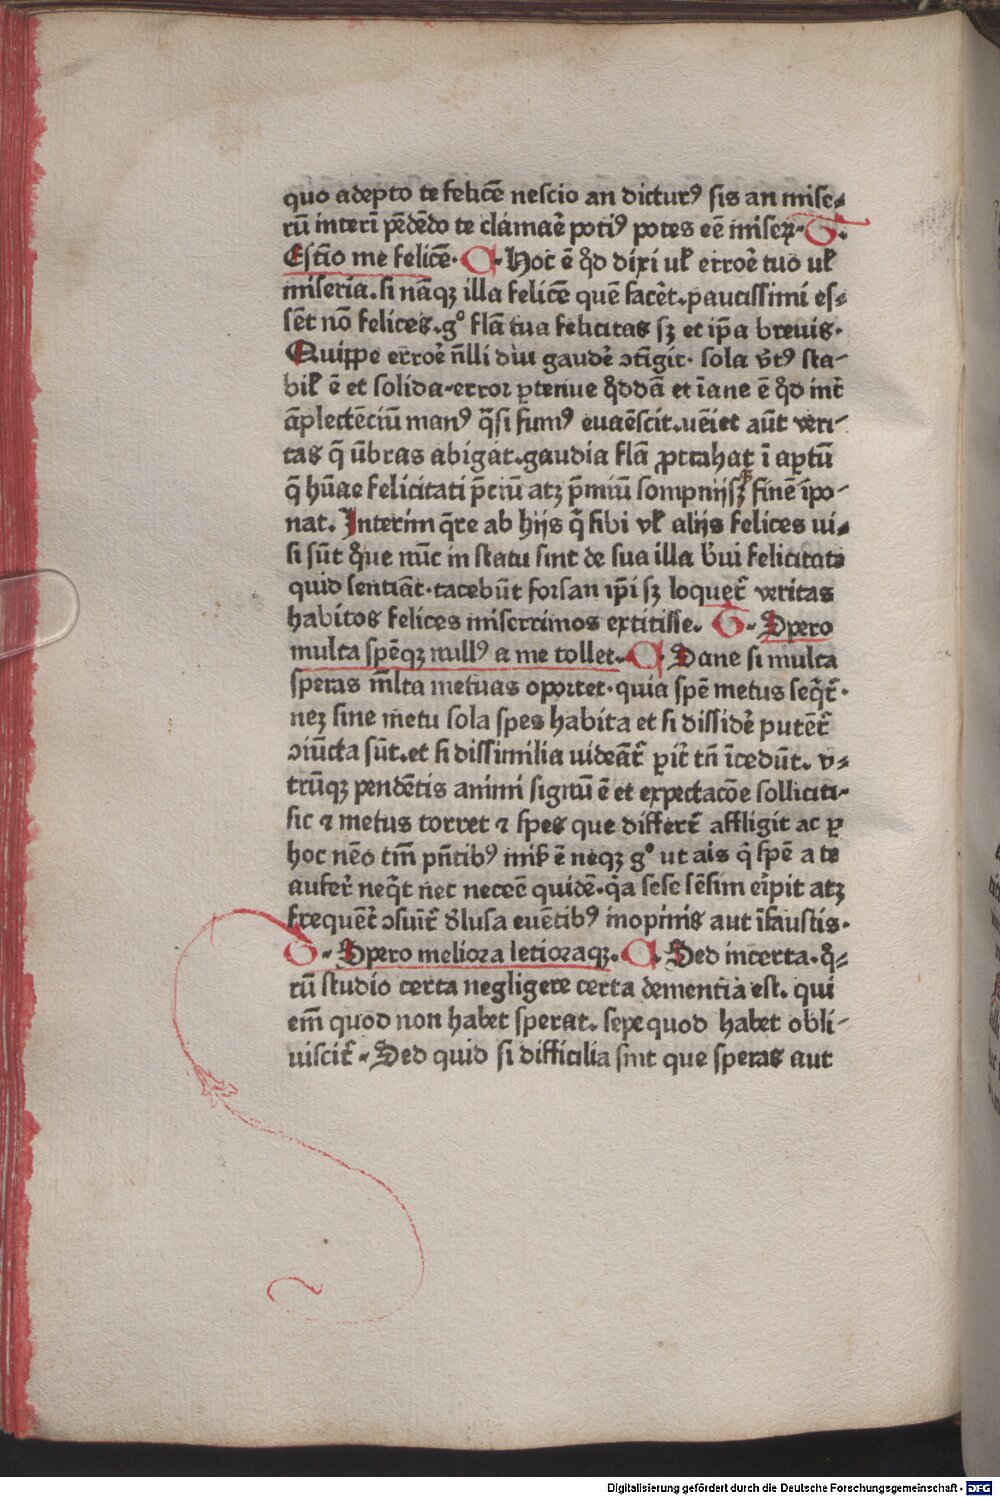 quo adepto te felicē nescio an dicturꝰ sis an mise⸗
rū interī pēdēdo te clamar̄e potiꝰ potes eē miseꝝ. G.
Estīo me felicē. C. Hoc ē qd̄ dixi vl̄ error̄e tuo vl̄
miseria. si nāqꝫ illa felicē quē facer̄t. paucissimi es⸗
sēt nō felices. gͦ flā tua felicitas sꝫ et ip̄a brevis.
Quippe error̄e n̄lli diu gauder̄e ɔtīgit. sola v̄itꝰ sta⸗
bil̄ ē et solida. error ꝑtenue qd̄dā et īane ē qd̄ int̄
āplectēciū manꝰ q̄si fumꝰ evaēscit. uēiet aūt veri⸗
tas q̄ ūbras abigat. gaudia flā ꝓtrahat ī aꝑtū
q̄ hūae felicitati p̄ciū atꝫ p̄miū sompniisꝫ finē īpo⸗
nat. Interim q̄re ab hijs q̄ sibi vl̄ alijs felices ui⸗
si sūt q̄ue nūc in statu sint de sua illa b̄ui felicitate
quid sentiāt. tacebūt forsan ip̄i sꝫ loquet̄ veritas
habitos felices miserrimos extitisse. G. Spero
multa spēqꝫ nullꝰ a me tollet. C. Sane si multa
speras m̄lta metuas oportet. quia spē metus seq̄t̄.
neꝫ sine metu sola spes habita et si dissider̄e putēt̄
ɔiūcta sūt. et si dissimilia uideāt̄ ꝑit̄ tn̄ īcedūt. v⸗
trūqꝫ pendētis animi signū ē et expectacōe solliciti⸗
sic ⁊ metus torret ⁊ spes que differt̄ affligit ac ꝑ
hoc nēo tm̄ pn̄tibꝰ mis̄ ē neqꝫ gͦ ut ais q̄ spē a te
aufer̄t neq̄t nec necēē quidē. q̄a sese sēsim er̄ipit atꝫ
frequēt̄ ɔsuīt̄ d̄lusa euētibꝰ inopinis aut īfaustis.
G. Spero meliora letioraqꝫ. C. Sed incerta. q̄⸗
rū studio certa negligere certa dementia est. qui
em̄ quod non habet sperat. sepe quod habet obli⸗
uiscit̄. Sed quid si difficilia sint que speras aut
Digitalisierung gefördert durch die Deutsche Forschungsgemeinschaft - DFG